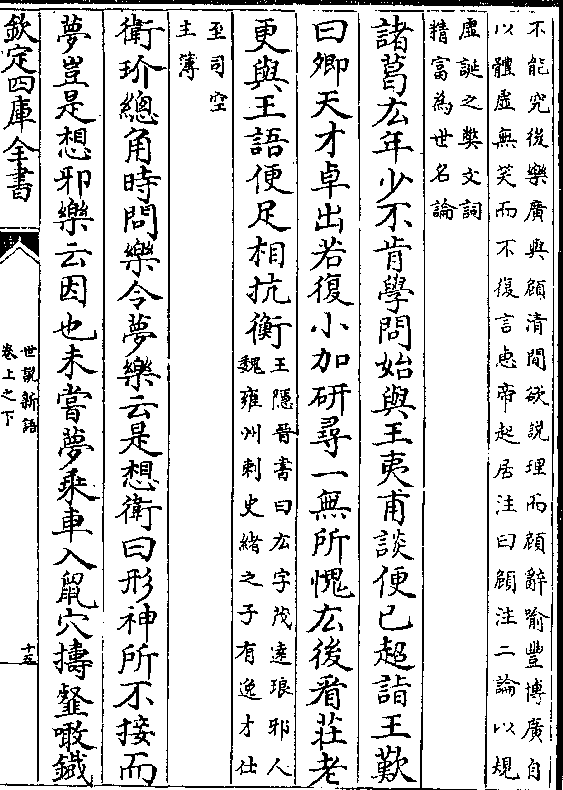 不能究後樂廣與頠清閒欲說理而頠辭喻豐博廣自
以體虛無笑而不復言惠帝起居注曰頠注二論以規
虛誕之獘文詞
精富為世名論
諸葛厷年少不肯學問始與王夷甫談便已超詣王歎
曰卿天才卓出若復小加研尋一無所愧厷後看莊老
更與王語便足相抗衡
王隱晉書曰厷字茂遠琅邪人
魏雍州刺史緒之子有逸才仕
至司空
主簿
衛玠總角時問樂令夢樂云是想衛曰形神所不接而
夢豈是想邪樂云因也未嘗夢乗車入鼠穴擣韲噉鐵
欽定四庫全書
世說新語
卷上之下
十五